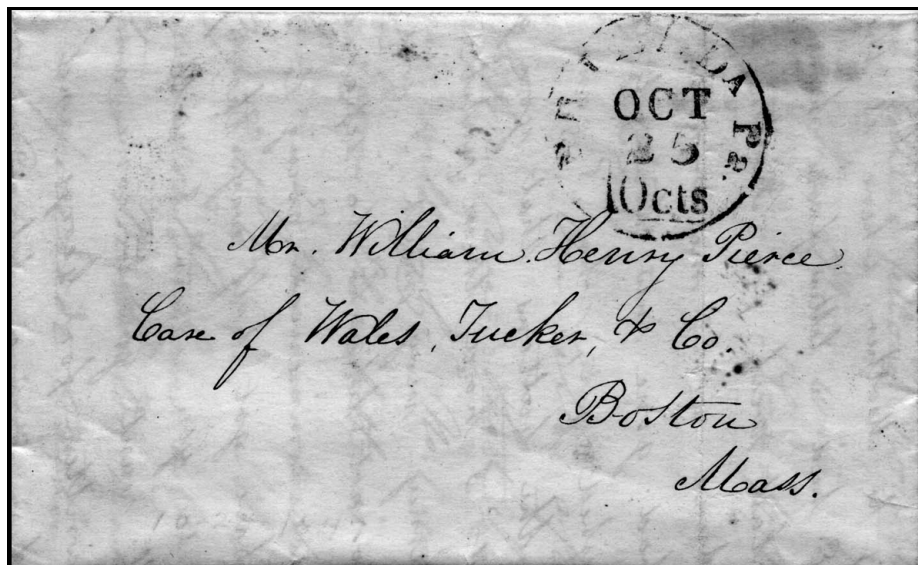 Pa.
OCT
25
10cts
Mr. William Henry Pierce
Care of Wales, Tucker, & Co.
Boston
Mass.